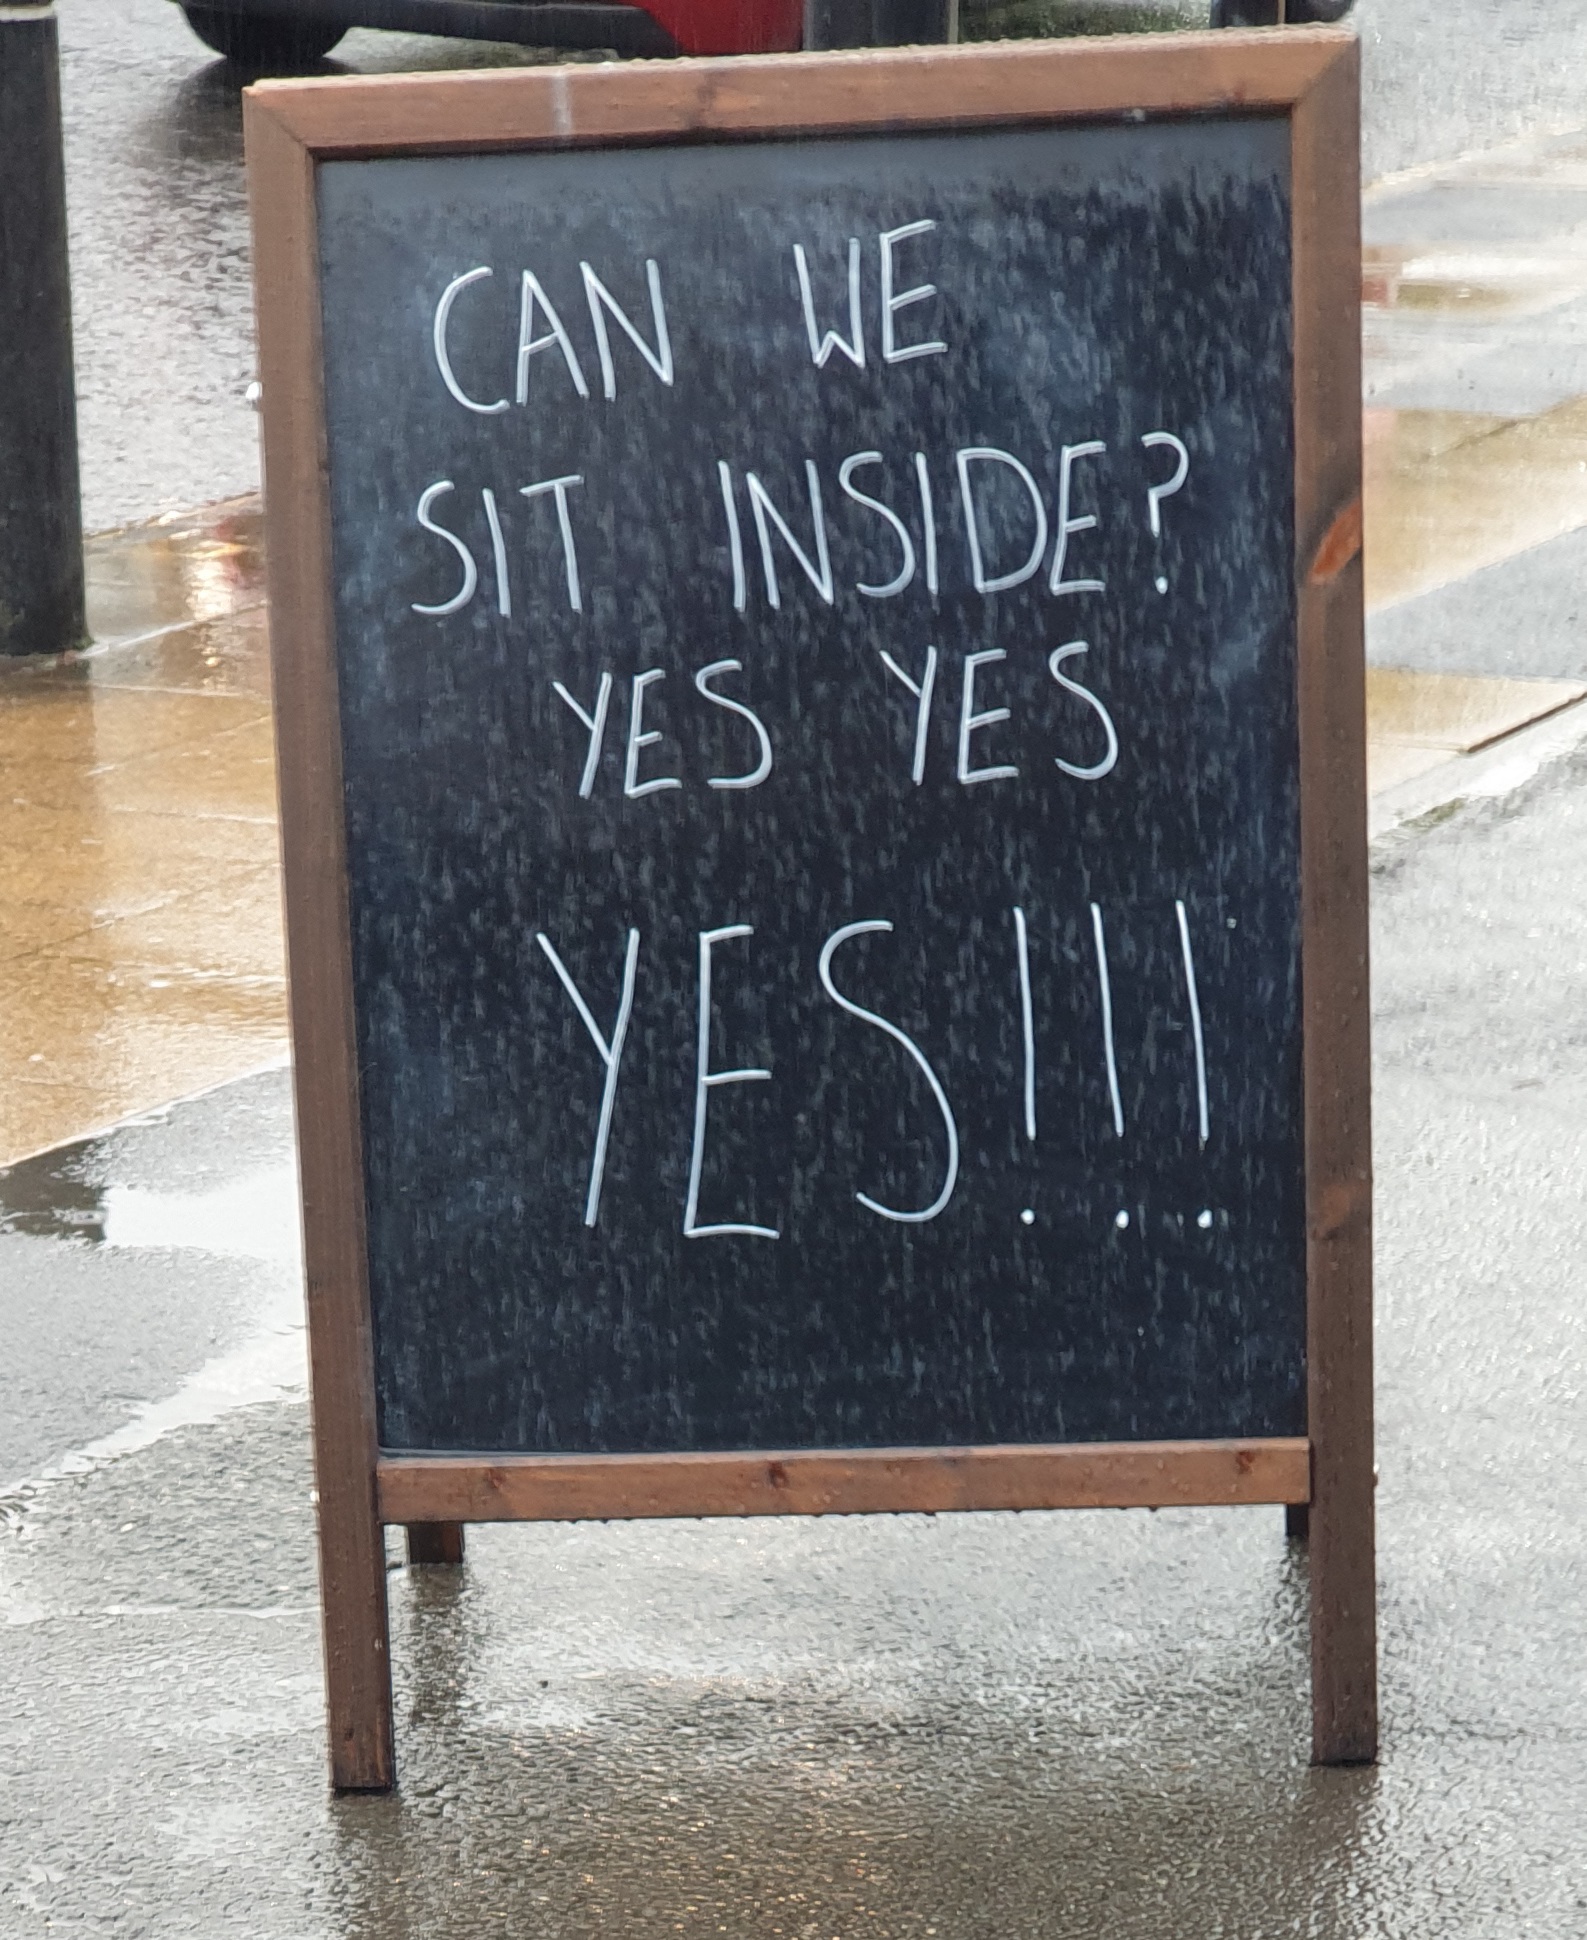 CAN WE
SIT INSIDE?
YES YES
YES!!!